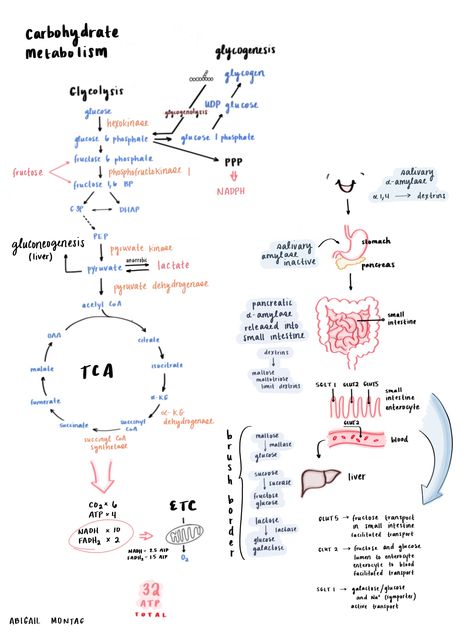 Carbohydrate
Metabolism
glycogenesis
glycogen
UDP glucose
glycogenolysis
glucose 1 phosphate
Glycolysis
glucose
hexokinase
glucose 6 phosphate
PPP
NADPH
fructose 6 phosphate
fructose
phosphofructokinase 1
fructose 1,6 BP
G3P
DHAP
PEP
gluconeogenesis
(liver)
pyruvate kinase
pyruvate
anaerobic
lactate
pyruvate dehydrogenase
acetyl CoA
TCA
OAA
citrate
isocitrate
α-KG
α-KG
dehydrogenase
succinyl
CoA
succinyl CoA
synthetase
succinate
fumerate
malate
CO2 × 6
ATP × 4
NADH × 10
FADH2 × 2
ETC
NADH = 2.5 ATP
FADH2 = 1.5 ATP
O2
32
ATP
TOTAL
ABIGAIL MONTAG
salivary
α-amylase
α1,4 → dextrins
salivary
amylase
inactive
stomach
pancreas
pancreatic
α-amylase
released into
small intestine
small
intestine
dextrins
maltose
maltotriose
limit dextrins
SGLT 1 GLUT2 GLUT5
small
intestine
enterocyte
GLUT2
blood
liver
brush border
maltose
maltase
glucose
sucrose
sucrase
fructose
glucose
lactose
lactase
glucose
galactose
GLUT5 → fructose transport
in small intestine
facilitated transport
GLUT 2 → fructose and glucose
lumen to enterocyte
enterocyte to blood
facilitated transport
SGLT 1 → galactose/glucose
and Na+ (symporter)
active transport